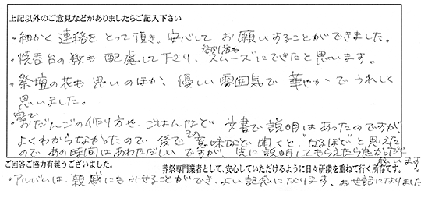 上記以外のご意見などがありましたらご記入下さい
・細かく連絡をとって頂き、安心してお願いすることができました。
・焼香台の数も配慮して下り、スムーズにできたと思います。
・祭壇の花も思いのほか、優しい雰囲気で華やかでうれしく
思いました。
だんごの作り方や、は文書で説明はあったのですが
よくわからなかったので、後で意味など聞くと、"なるほど"と思えた
ので、あの時間はあわただしいですが、先に説明してもらえたら
ご回答ご協力有難うございました。
葬祭専門業者として、安心していただけるように日々研鑽を重ねて行く所存です。
・アルバムは、親戚にもことができ、よい記念になります。お世話になりました